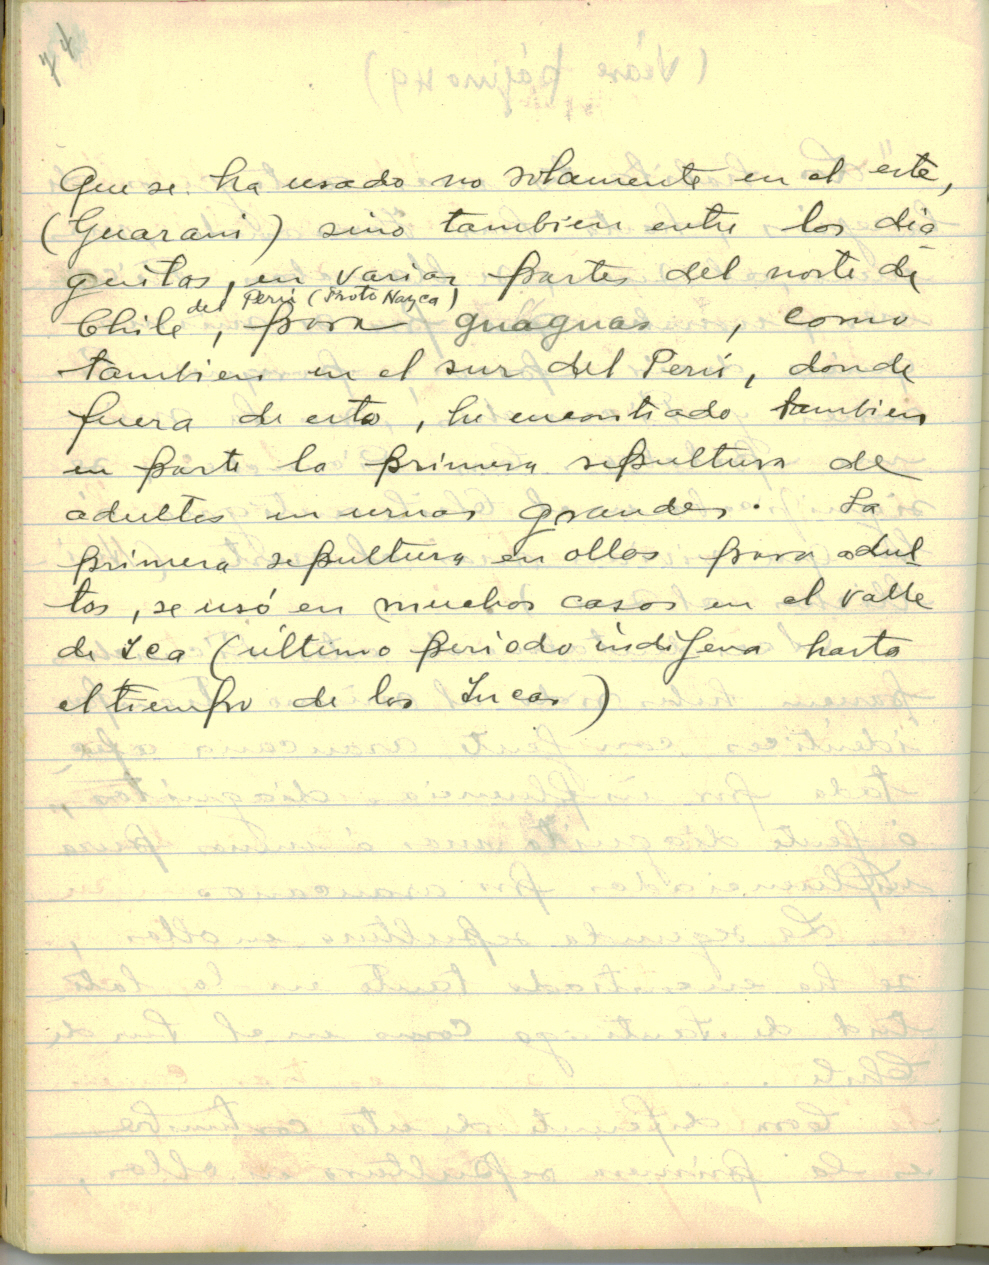 44
Que se ha usado no solamente en el este,
(Guarani) sino tambien entre los dia
guitas, en varias partes del norte de
del Perú (Proto Nazca)
Chile, para guaguas, como
tambien en el sur del Perú, donde
fuera de esto, he encontrado tambien
en parte la primera sepultura de
adultos en urnas grandes. La
primera sepultura en ollas para adul-
tos, se usó en muchos casos en el valle
de Ica (último periodo indígena hasta
el tiempo de los Incas)